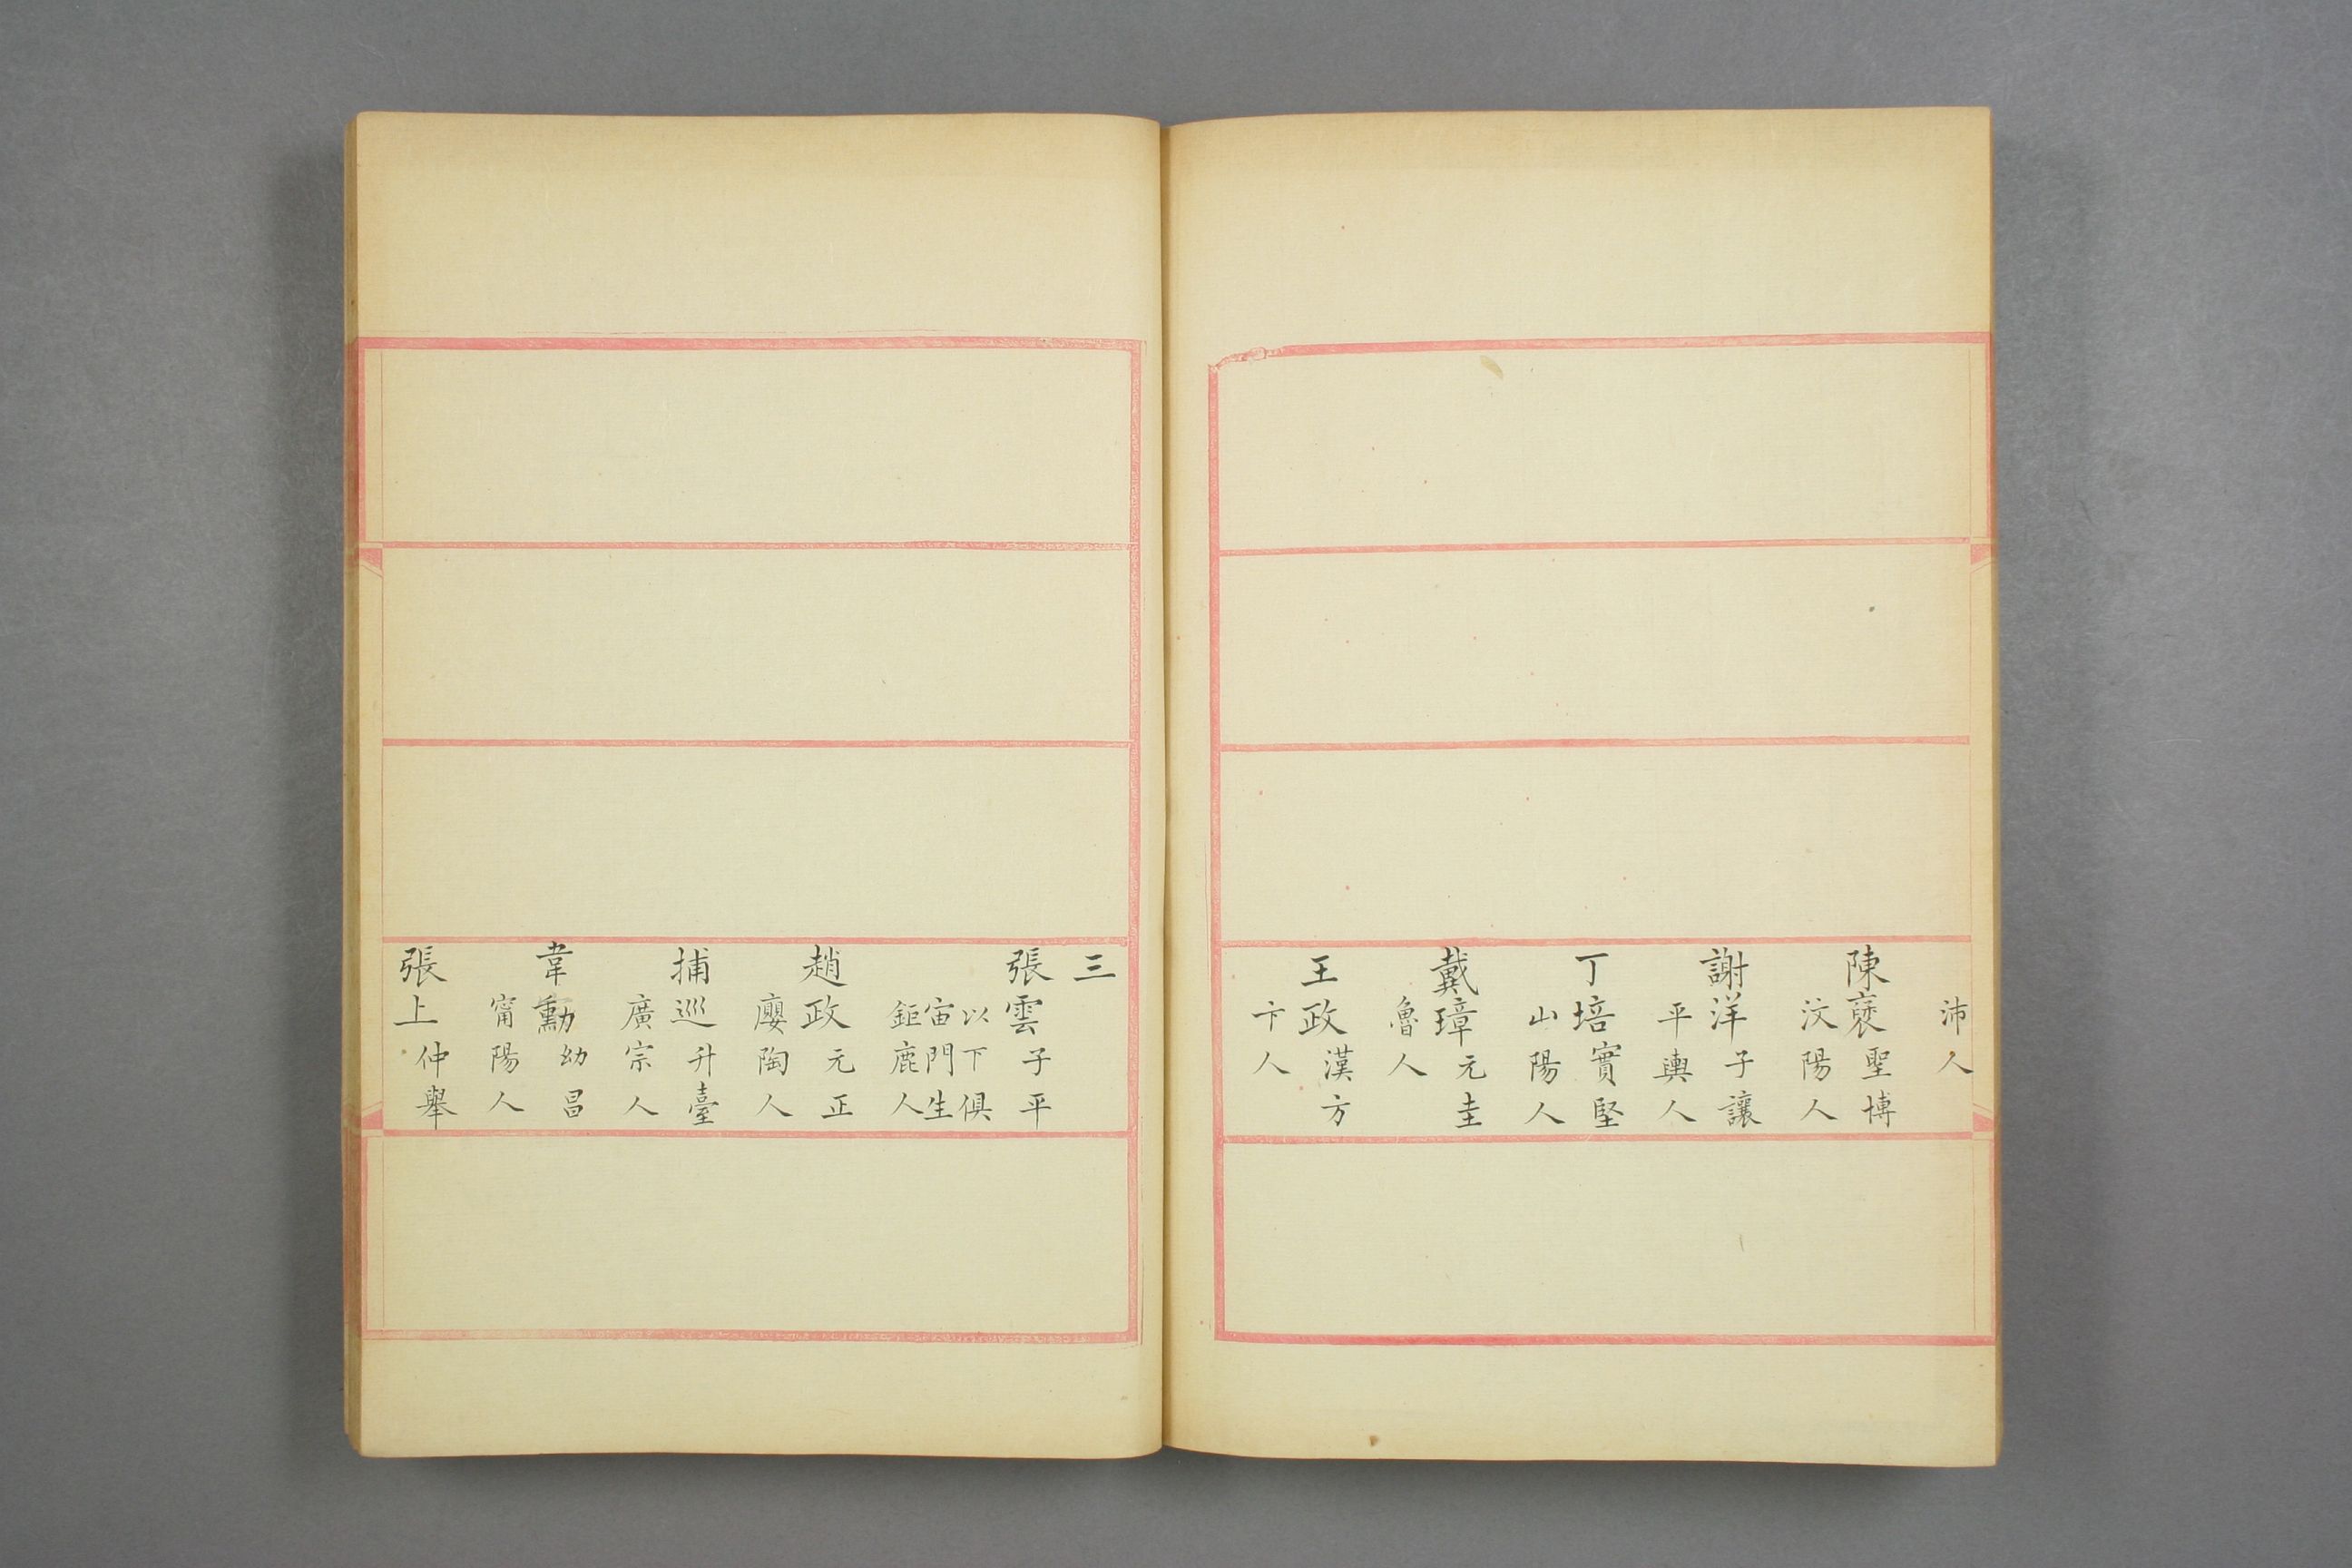 沛人
陳褒聖博
汶陽人
謝洋子讓
平輿人
丁培實堅
山陽人
戴璋元圭
魯人
王政漢方
卞人
三
張雲子平
以下俱
宙門生
鉅鹿人
趙政元正
廮陶人
捕巡升臺
廣宗人
韋勳幼昌
甯陽人
張上仲舉